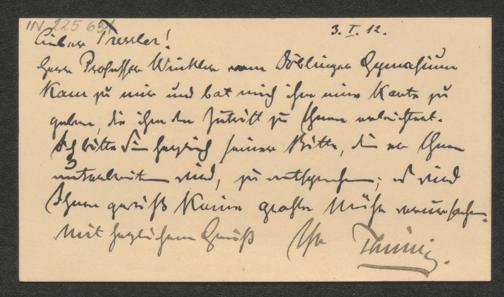 IN 225 631
3. I. 12.
Lieber Tressler!
Herr Professor Winkler vom Döblinger Gymnasium
kam zu mir und bat mich ihm eine Karte zu
geben, die ihm den Zutritt zu Ihnen erleichtert.
Ich bitte Sie herzlich seiner Bitte, die er Ihnen
unterbreiten wird, zu entsprechen; es wird
Ihnen gewiß keine große Mühe verursachen.
Mit herzlichem Gruß Ihr Thimig.